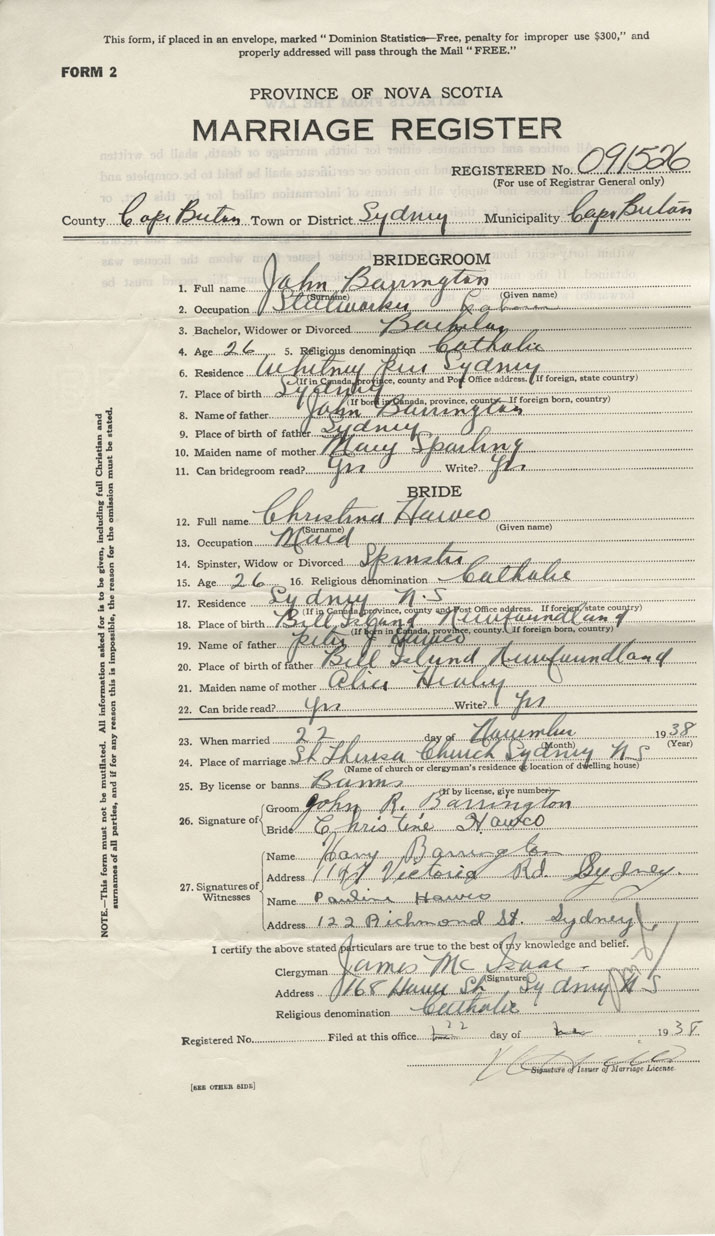 This form, if placed in an envelope, marked "Dominion Statistics—Free, penalty for improper use $300," and
properly addressed will pass through the Mail "FREE."
FORM 2
PROVINCE OF NOVA SCOTIA
MARRIAGE REGISTER
REGISTERED No. 091526
(For use of Registrar General only)
County Cape Breton Town or District Sydney Municipality Cape Breton
BRIDEGROOM
1. Full name John Barrington
(Surname) (Given name)
2. Occupation Steelworker
3. Bachelor, Widower or Divorced Bachelor
4. Age 26 5. Religious denomination Catholic
6. Residence Whitney Pier Sydney
(If in Canada, province, county and Post Office address. If foreign, state country)
7. Place of birth Sydney
(If born in Canada, province, county. If foreign born, country)
8. Name of father John Barrington
9. Place of birth of father Sydney
10. Maiden name of mother Mary Sparling
11. Can bridegroom read? Yes Write? Yes
BRIDE
12. Full name Christina Hawco
(Surname) (Given name)
13. Occupation Maid
14. Spinster, Widow or Divorced Spinster
15. Age 26 16. Religious denomination Catholic
17. Residence Sydney N.S
(If in Canada, province, county and Post Office address. If foreign, state country)
18. Place of birth Bell Island Newfoundland
(If born in Canada, province, county. If foreign born, country)
19. Name of father Peter J Hawco
20. Place of birth of father Bell Island Newfoundland
21. Maiden name of mother Alice Healey
22. Can bride read? Yes Write? Yes
23. When married 22 day of November 1938
(Month) (Year)
24. Place of marriage St Theresa Church Sydney N S
(Name of church or clergyman's residence or location of dwelling house)
25. By license or banns Banns
(If by license, give number)
26. Signature of
Groom John R. Barrington
Bride Christine Hawco
27. Signatures of Witnesses
Name Harry Barrington
Address 1147 Victoria Rd. Sydney.
Name Pauline Hawco
Address 122 Richmond St. Sydney
I certify the above stated particulars are true to the best of my knowledge and belief.
Clergyman James McIsaac
(Signature)
Address 168 St Sydney N S
Religious denomination Catholic
Registered No. Filed at this office 22 day of 1938
Signature of Issuer of Marriage License.
[SEE OTHER SIDE]
NOTE.—This form must not be mutilated. All information asked for is to be given, including full Christian and
surnames of all parties, and if for any reason this is impossible, the reason for the omission must be stated.